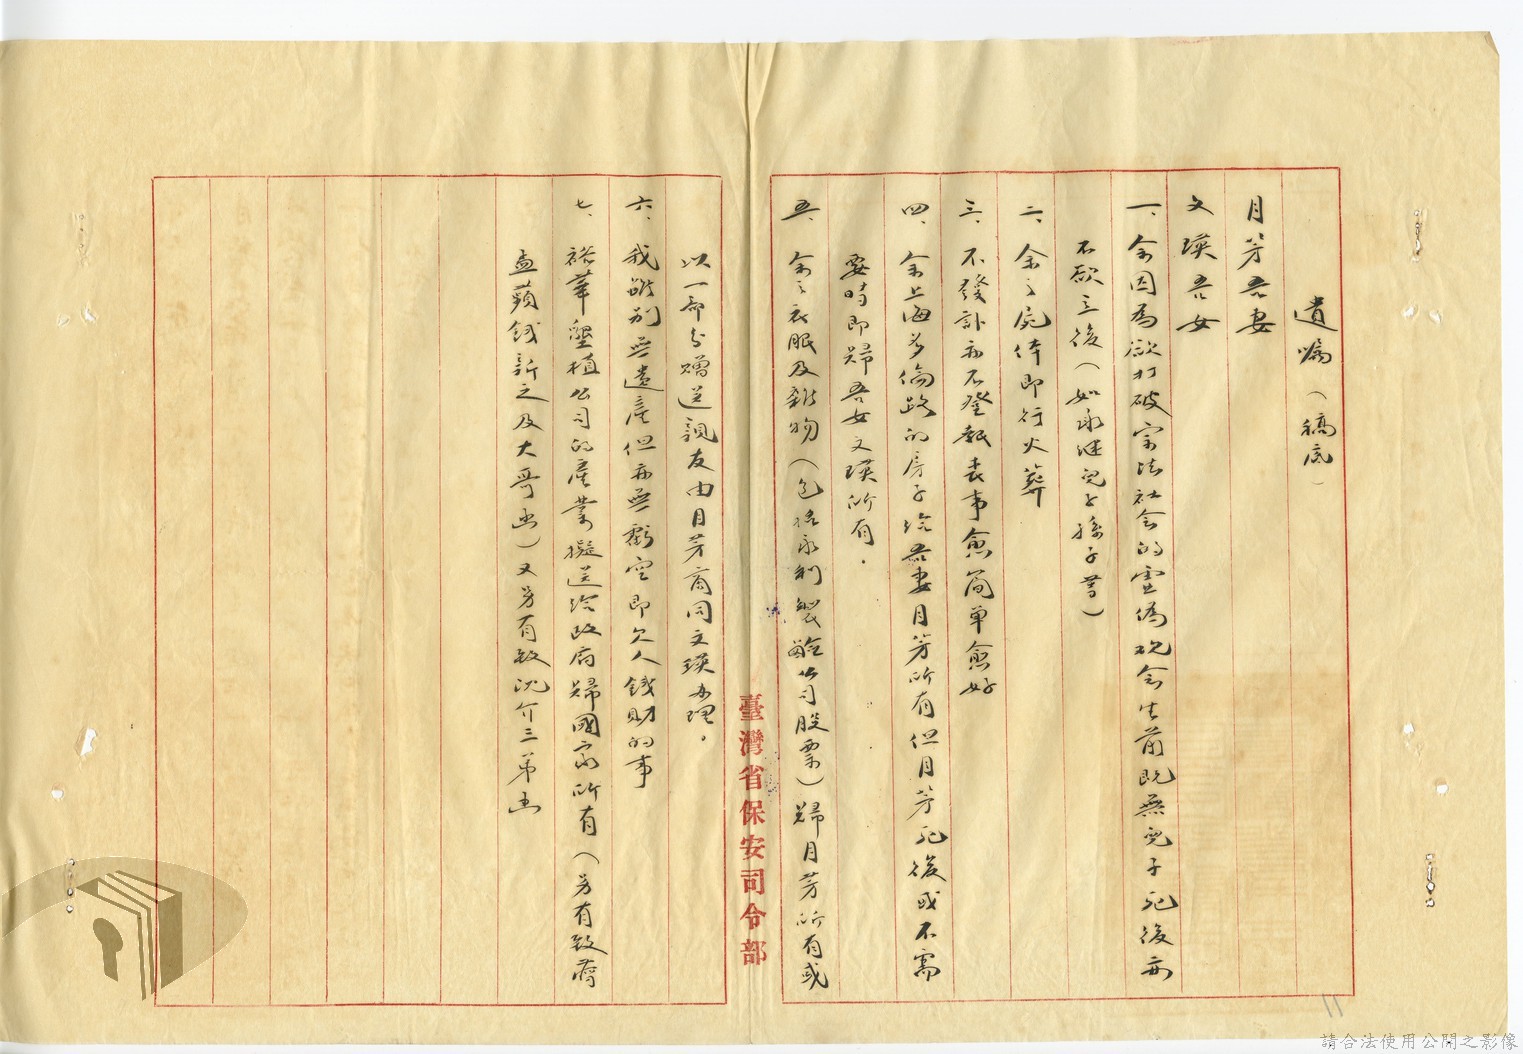 遺囑（稿底）
月芳吾妻
文瑛吾女
一、余因為欲打破宗法社会的虛偽观念生前既無兒子死後亦
不欲立後（如承继兒子孫子等）
二、余之屍体即行火葬
三、不發訃亦不登報喪事愈简单愈好
四、余上海多倫路的房子给吾妻月芳所有但月芳死後或不需
要時即歸吾女文瑛所有．
五、余之衣服及雜物（包括永利製鹼公司股票）歸月芳所有或
以一部分贈送親友由月芳商同文瑛办理．
六、我離别無遺產但亦無虧空即欠人錢财的事
七、裕華墾植公司的產業擬送给政府歸國家所有（另有致蔣
孟蘋錢新之及大哥函）又另有致沈介三弟函
臺灣省保安司令部
11
請合法使用公開之影像